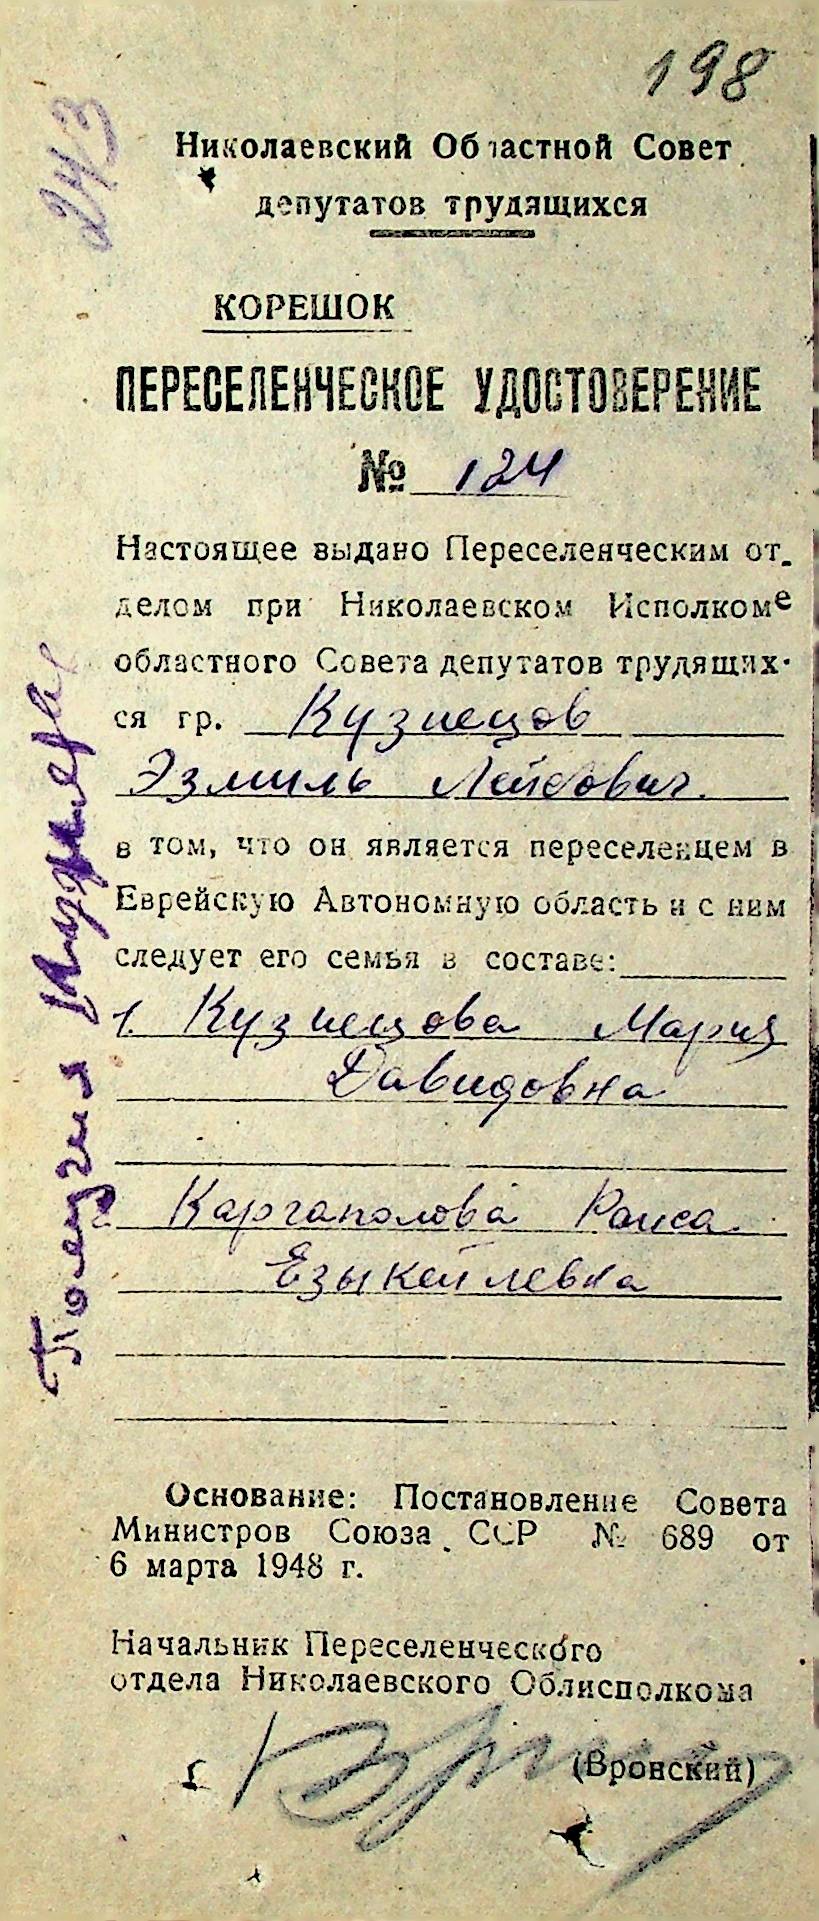 198
243
Николаевский Областной Совет
депутатов трудящихся
КОРЕШОК
ПЕРЕСЕЛЕНЧЕСКОЕ УДОСТОВЕРЕНИЕ
№ 124
Настоящее выдано Переселенческим от-
делом при Николаевском Исполкоме
областного Совета депутатов трудящих-
ся гр. Кузнецов
Эзмиль Лейбович
в том, что он является переселенцем в
Еврейскую Автономную область и с ним
следует его семья в составе:
1. Кузнецова Мария
Давидовна
2. Каргаполова Раиса
Езыкейлевна
Основание: Постановление Совета
Министров Союза ССР № 689 от
6 марта 1948 г.
Начальник Переселенческого
отдела Николаевского Облисполкома
(Вронский)